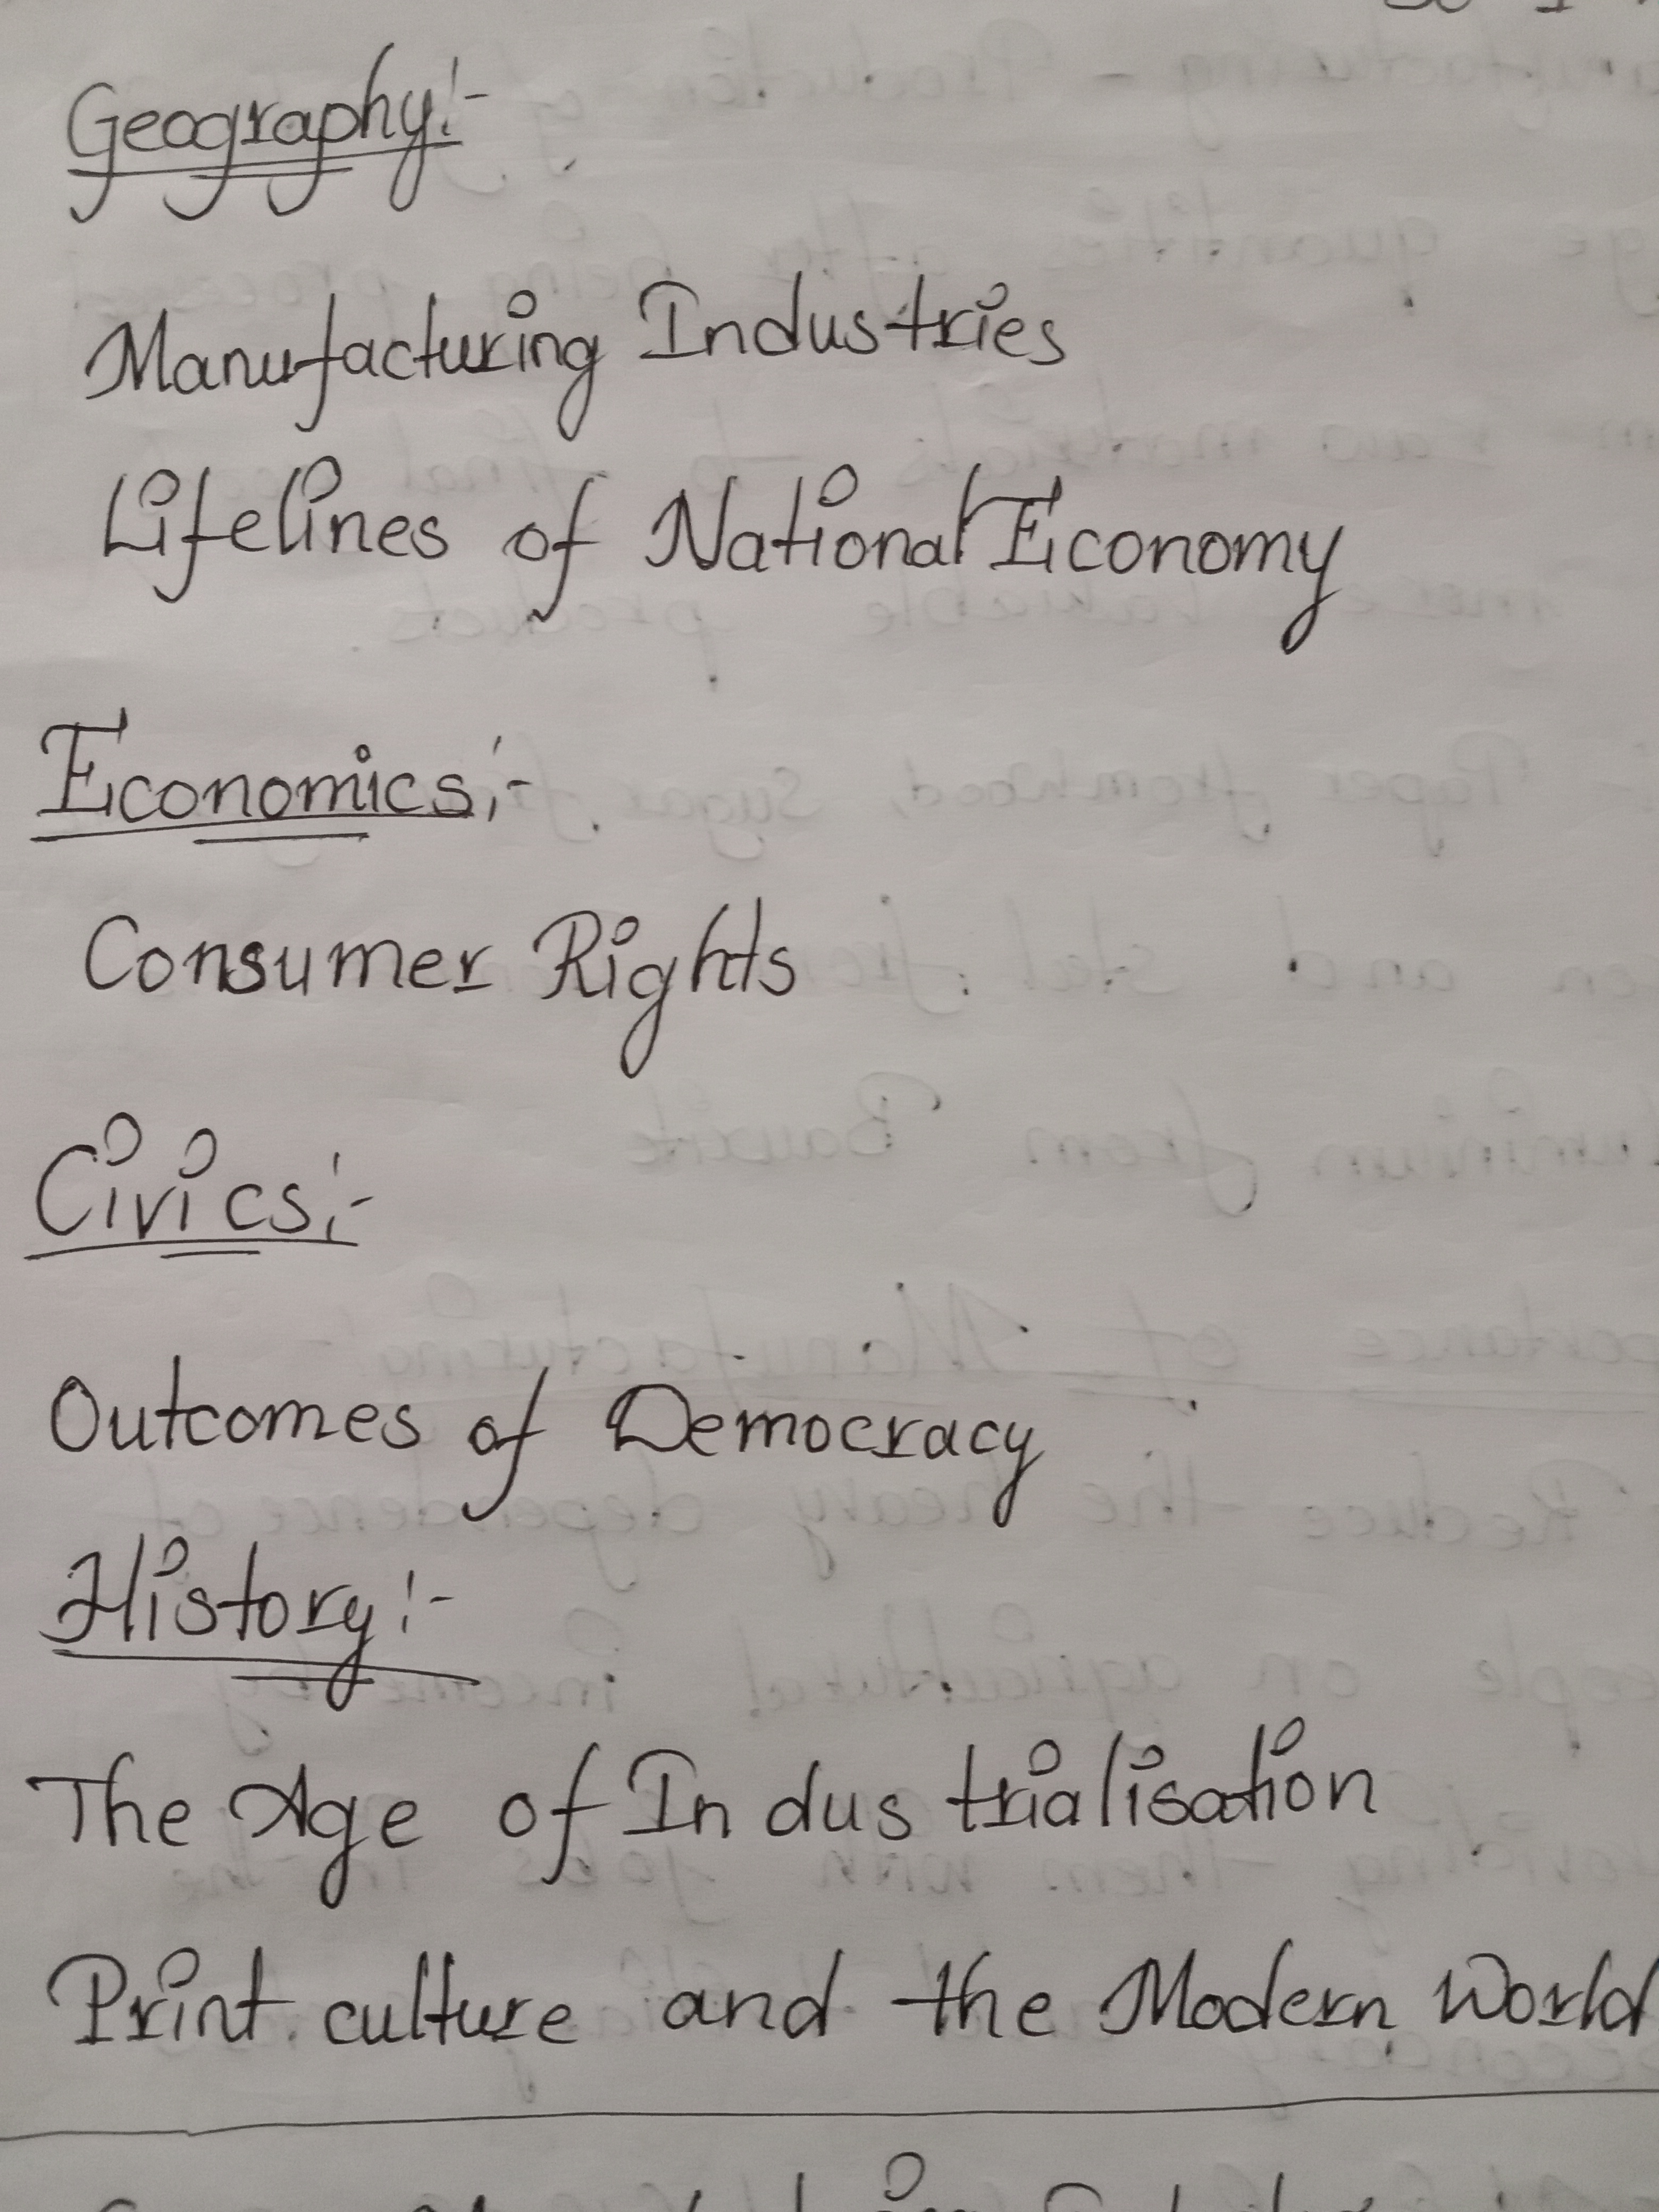 Geography:-
Manufacturing Industries
Lifelines of National Economy
Economics:-
Consumer Rights
Civics:-
Outcomes of Democracy
History:-
The Age of Industrialisation
Print culture and the Modern World